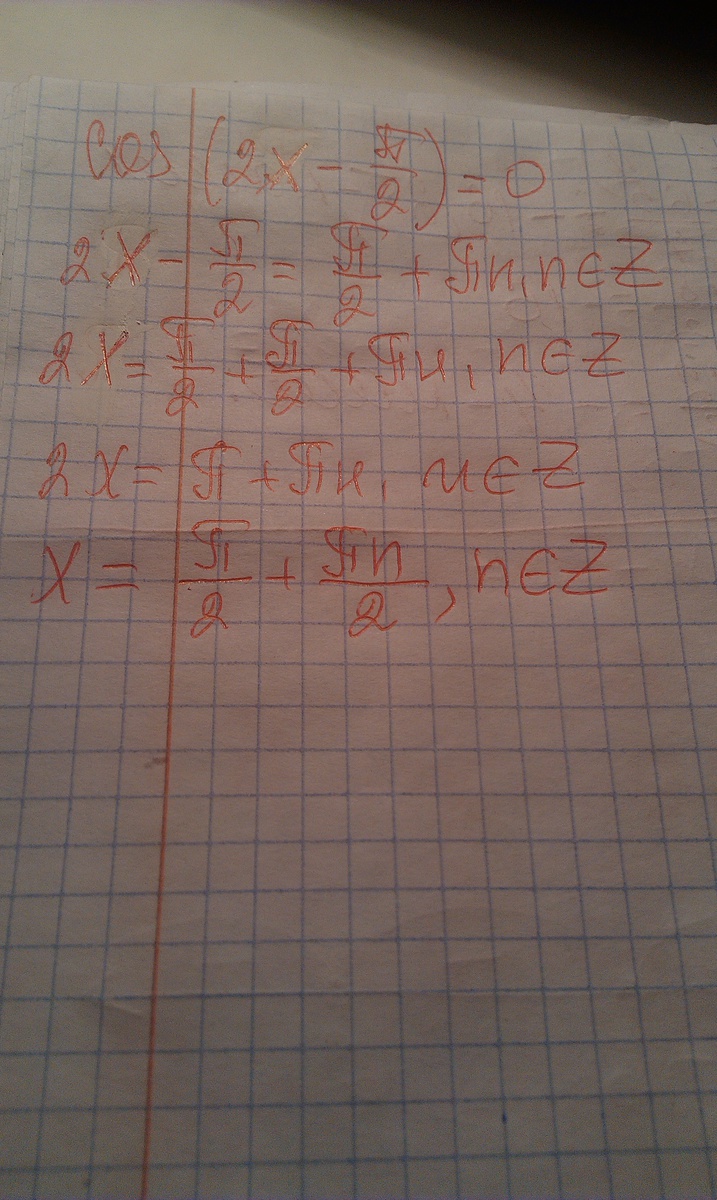 cos (2x - π/2) = 0
2x - π/2 = π/2 + πn, n ∈ Z
2x = π/2 + π/2 + πn, n ∈ Z
2x = π + πn, n ∈ Z
x = π/2 + πn/2, n ∈ Z